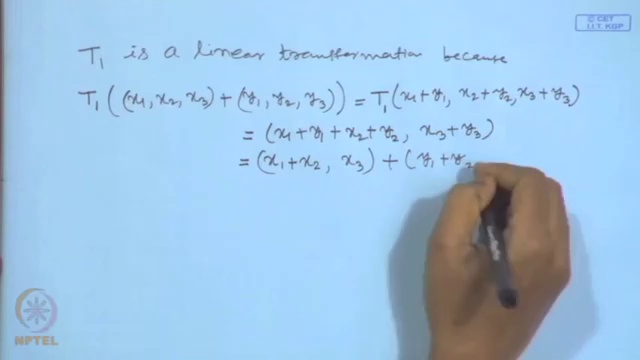 © CET
I.I.T. KGP
T₁ is a linear transformation because
T₁((x₁, x₂, x₃) + (y₁, y₂, y₃)) = T₁(x₁+y₁, x₂+y₂, x₃+y₃)
= (x₁+y₁+x₂+y₂, x₃+y₃)
= (x₁+x₂, x₃) + (y₁+y₂
NPTEL